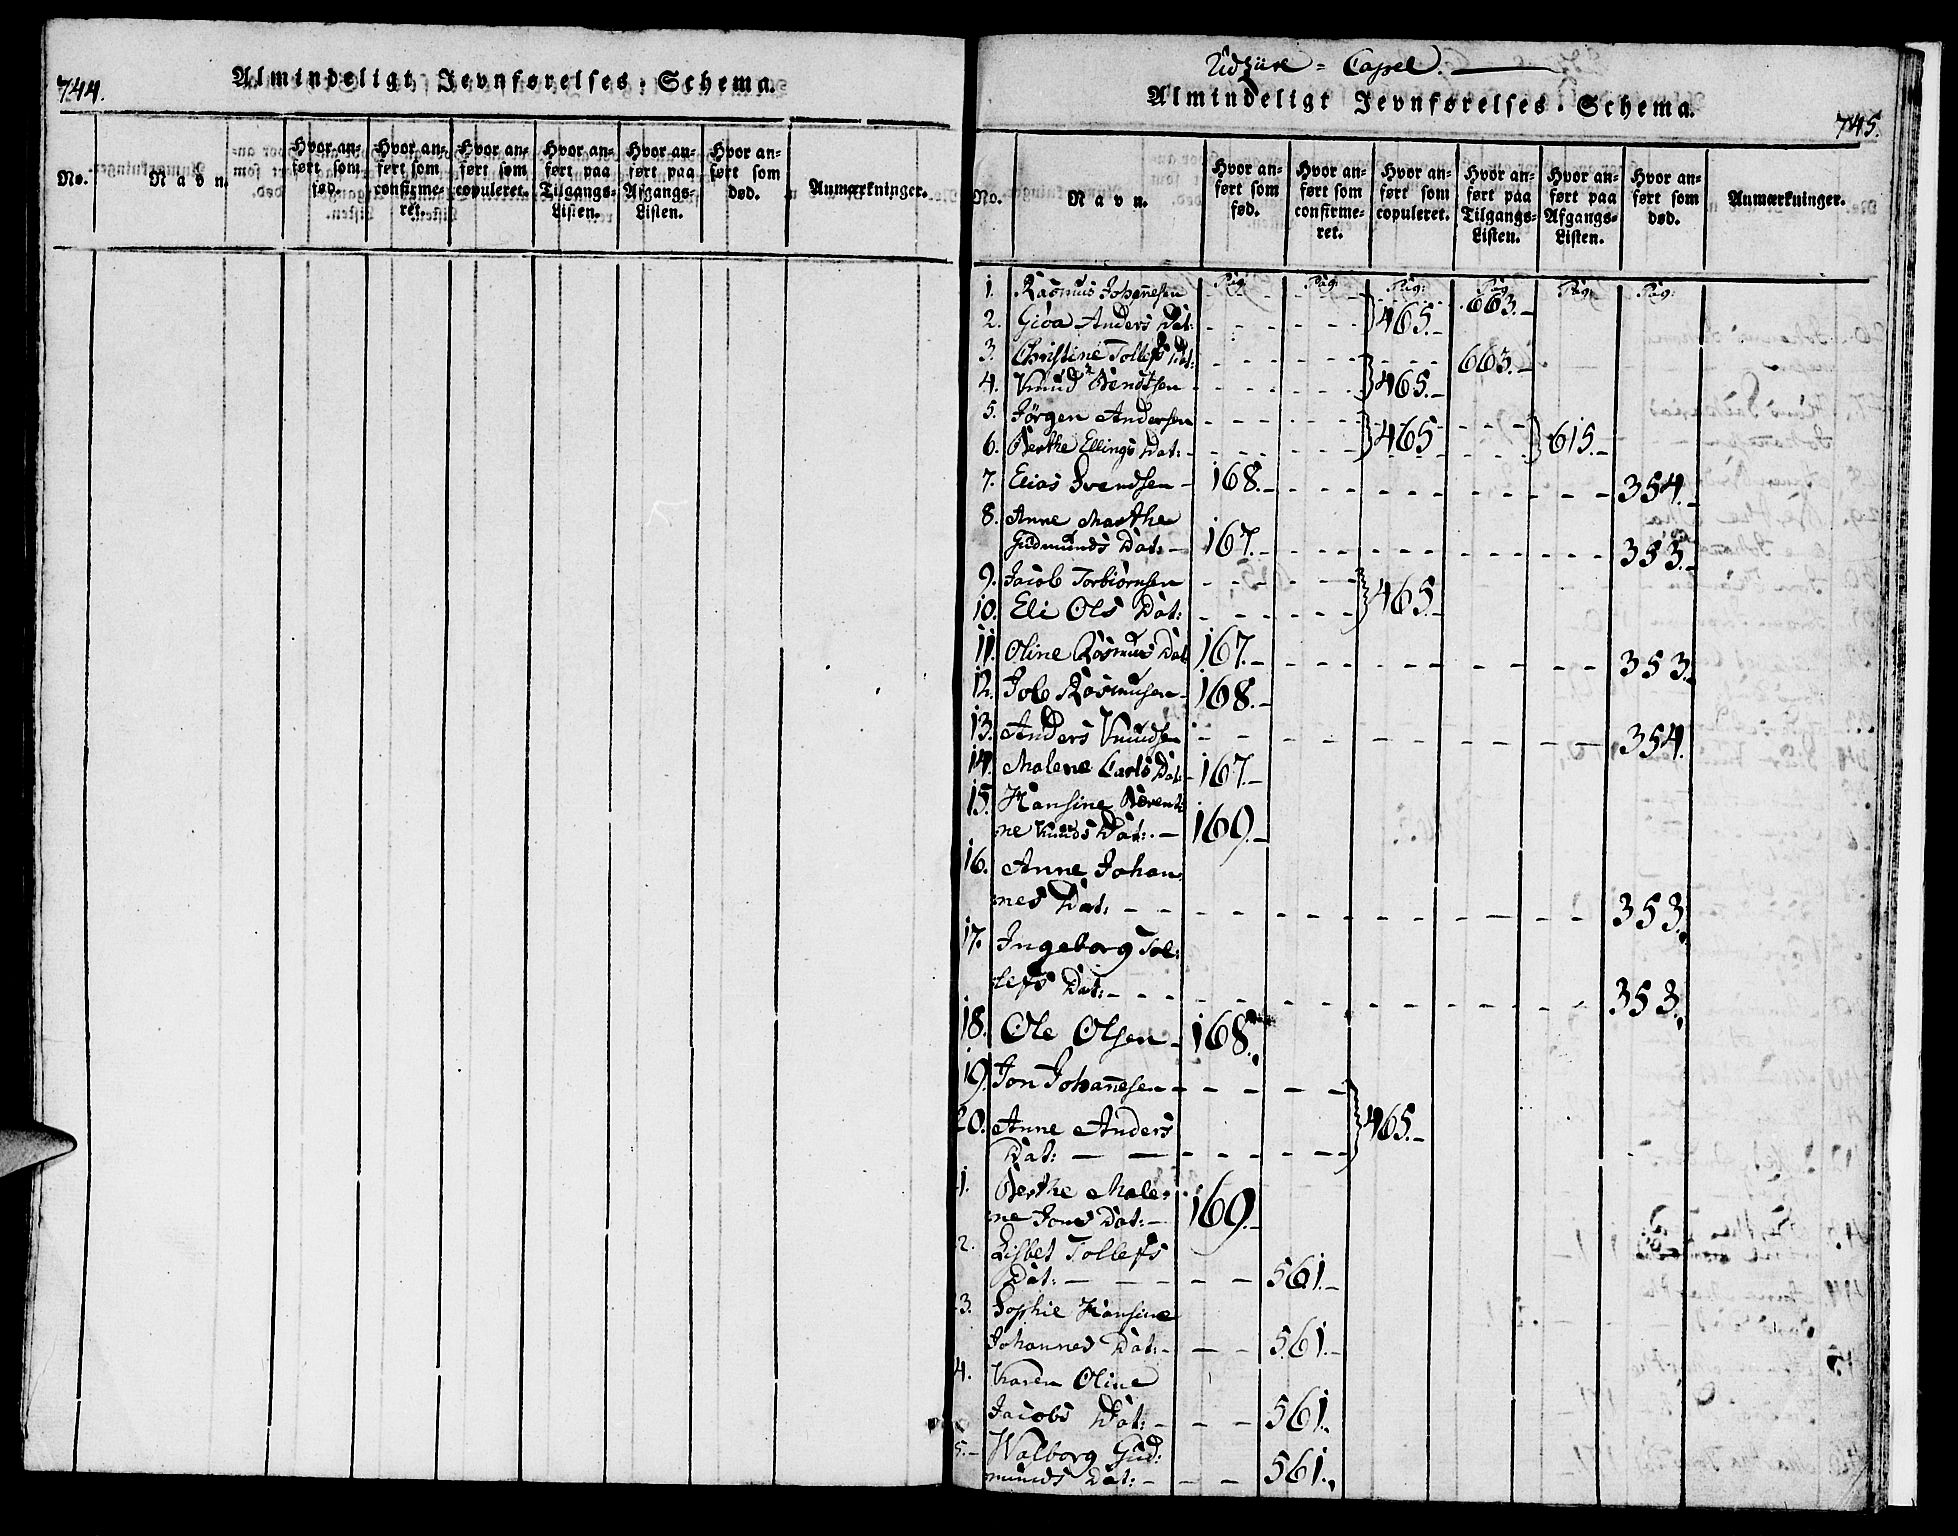 744.
Almindeligt Jevnførelses-Schema.
No.
Navn.
Hvor anført som fød.
Hvor anført som confirmeret.
Hvor anført som copuleret.
Hvor anført paa Tilgangs-Listen.
Hvor anført paa Afgangs-Listen.
Hvor anført som død.
Anmærkninger.
Udsire = Capel.
Almindeligt Jevnførelses-Schema.
745.
No.
Navn.
Hvor anført som fød.
Hvor anført som confirmeret.
Hvor anført som copuleret.
Hvor anført paa Tilgangs-Listen.
Hvor anført paa Afgangs-Listen.
Hvor anført som død.
Anmærkninger.
Pag: Pag: Pag: Pag: Pag: Pag:
1. Rasmus Johannesen - - - } 465. - 663. -
2. Gioa Anders Dat: - - -
3. Christine Tollefs Dat: - - - } 465. - 663. -
4. Knud Bendtsen - - -
5. Jörgen Andersen - - - } 465 - - } 615. -
6. Berthe Ellings Dat: - - -
7. Elias Svendsen - 168. - - - 354. -
8. Anne Marthe
Gudmunds Dat: - 167. - - - 353. -
9. Jacob Torbiörnsen - - - } 465. -
10. Eli Ols Dat: - - -
11. Oline Rasmus Dat 167. - - - 353. -
12. Job Rasmusen - 168. -
13. Anders Knudsen - - - 354.
14. Malene Carls Dat: - 167. -
15. Hansine Berent=
ne Knuds Dat: - 169. -
16. Anne Johan=
nes Dat: - - - 353. -
17. Ingeborg Tol=
lefs Dat: - - - 353.
18. Ole Olsen - 168.
19. Jon Johannesen - - - } 465. -
20. Anne Anders
Dat: - - -
1. Berthe Male=
ne Jons Dat: - 169. -
2. Lisbet Tollefs
Dat: - - - 561. -
3. Sophie Hansine
Johannes Dat: - - - 561. -
4. Karen Oline
Jacobs Dat: - - - 561.
5. - Walborg Gud=
munds Dat: - - - 561.